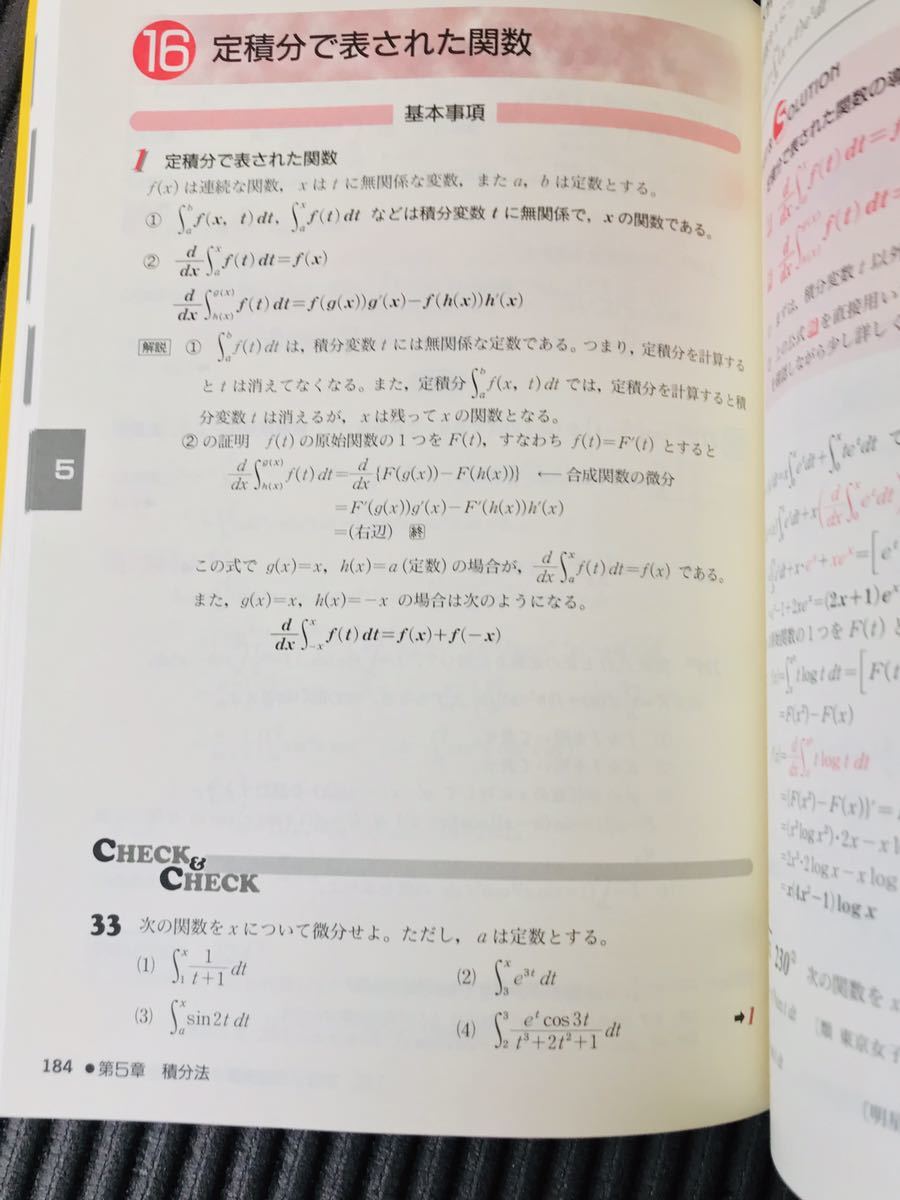 16 定積分で表された関数
基本事項
1 定積分で表された関数
f(x) は連続な関数, x は t に無関係な変数, また a, b は定数とする。
① ∫_a^b f(x, t)dt, ∫_a^x f(t)dt などは積分変数 t に無関係で, x の関数である。
② d/dx ∫_a^x f(t)dt=f(x)
d/dx ∫_{h(x)}^{g(x)} f(t)dt=f(g(x))g′(x)−f(h(x))h′(x)
解説 ① ∫_a^b f(t)dt は, 積分変数 t には無関係な定数である。つまり, 定積分を計算する
と t は消えてなくなる。また, 定積分 ∫_a^b f(x, t)dt では, 定積分を計算すると積
分変数 t は消えるが, x は残って x の関数となる。
②の証明 f(t) の原始関数の1つを F(t), すなわち f(t)=F′(t) とすると
d/dx ∫_{h(x)}^{g(x)} f(t)dt=d/dx{F(g(x))−F(h(x))} ← 合成関数の微分
=F′(g(x))g′(x)−F′(h(x))h′(x)
=(右辺) 終
この式で g(x)=x, h(x)=a (定数) の場合が, d/dx ∫_a^x f(t)dt=f(x) である。
また, g(x)=x, h(x)=−x の場合は次のようになる。
d/dx ∫_{−x}^x f(t)dt=f(x)+f(−x)
5
CHECK
& CHECK
33 次の関数を x について微分せよ。ただし, a は定数とする。
(1) ∫_1^x 1/(t+1) dt (2) ∫_3^x e^{3t} dt
(3) ∫_a^x sin2t dt (4) ∫_2^3 (e^t cos3t)/(t^3+2t^2+1) dt ➡1
184 ●第5章 積分法
OLUTION
で表された関数の導
f(t)dt=f
f(t)dt=
まずは, 積分変数 t 以外
を直接用い
しながら少し詳しく
=(2x+1)e^x
関数の1つを F(t) と
t log t dt=[F(t)
=F(x²)−F(x)
t log t dt
={F(x²)−F(x)}′=
=(x²log x²)·2x−x l
=2x²·2log x−x log
=x(4x²−1)log x
230② 次の関数を x
[類 東京女子
[明星